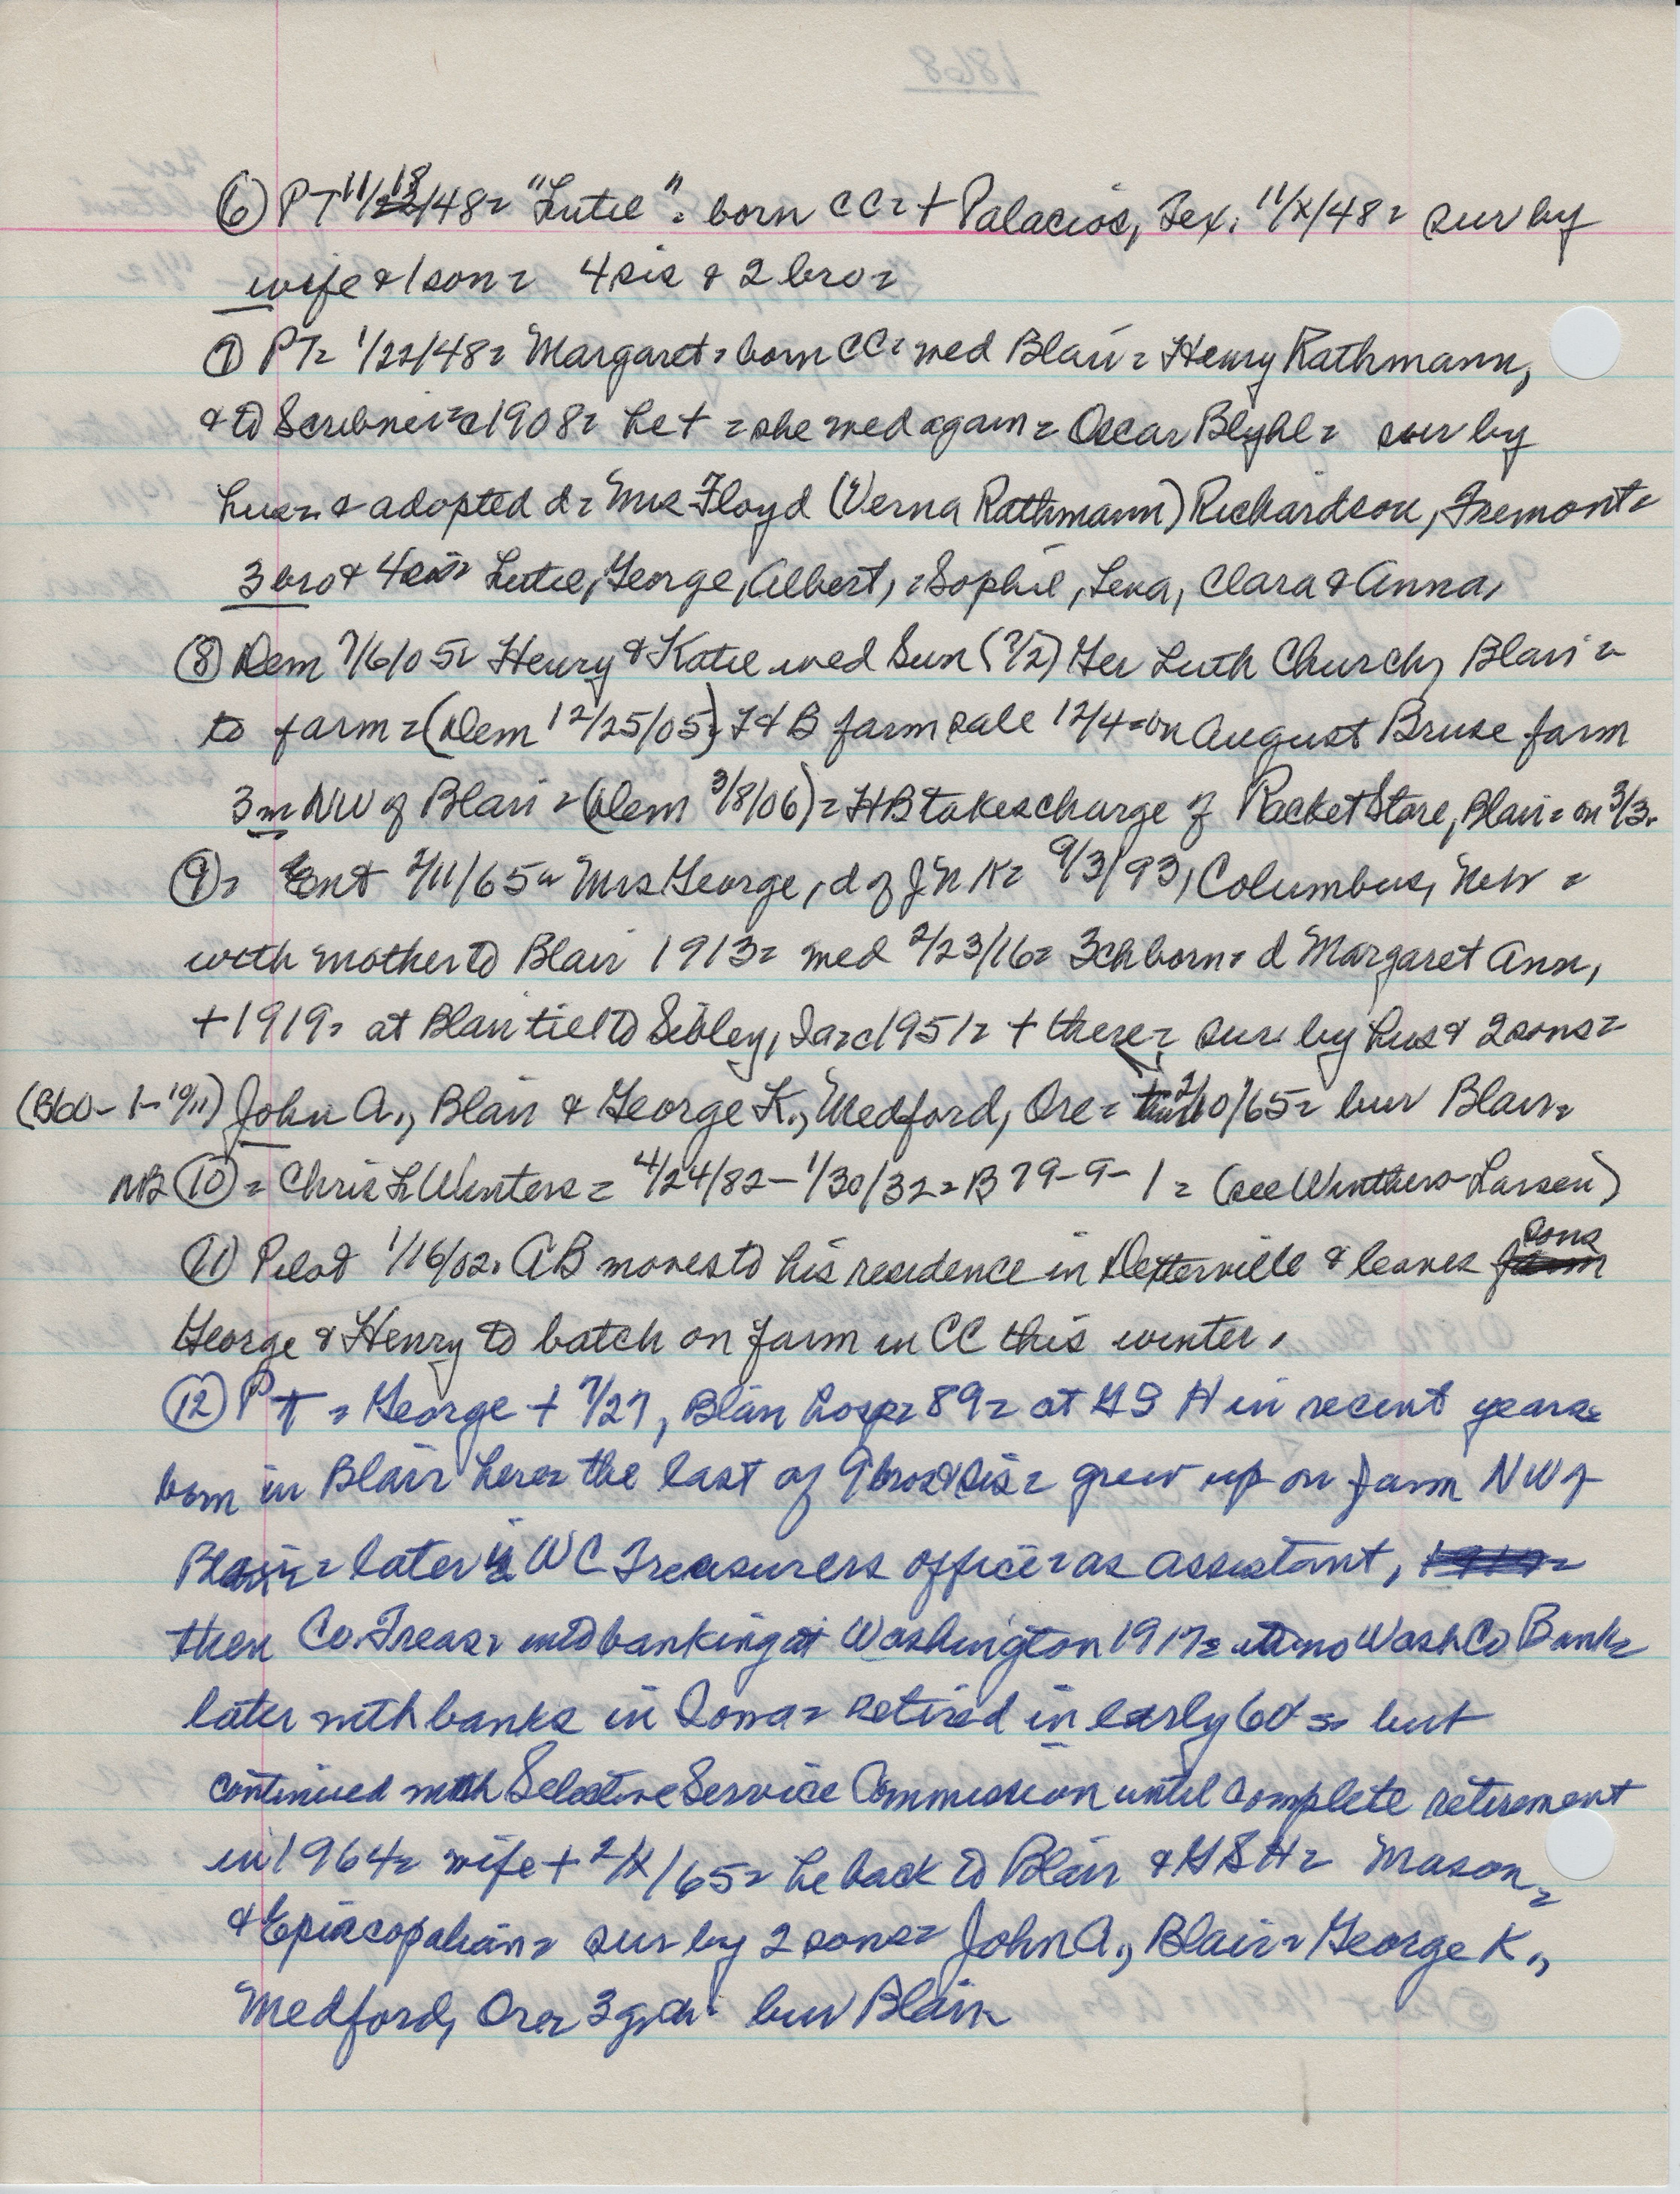 ⑥ PT 11/18/48= "Lutie" = born CC= + Palacios, Tex. 11/X/48= sur by
wife & 1 son = 4 sis & 2 bro =
⑦ PT= 1/22/48= Margaret = born CC= med Blair = Henry Rathmann,
& to Scribner = c1908= he + = she med again = Oscar Blyhl = sur by
hus = & adopted d = Mrs Floyd (Verna Rathmann) Richardson, Fremont =
3 bro & 4 sis = Lutie, George, Albert, = Sophie, Lena, Clara & Anna,
⑧ Dem 7/6/05= Henry & Katie med Sun (7/2) Ger Luth Church, Blair =
to farm = (Dem 12/25/05) H & B farm sale 12/4 = on August Bruse farm
3 m NW of Blair = (Dem 3/8/06) = HB takes charge of Racket Store, Blair = on 3/3.
⑨ = Ent 2/11/65 = Mrs George, d of J N K = 9/3/93, Columbus, Neb =
with mother to Blair 1913= med 2/23/16= 3 ch born = d Margaret Ann,
+ 1919= at Blair till to Sibley, Ia = c1951= + there = sur by hus & 2 sons =
(B60-1-10/11) John A., Blair & George K., Medford, Ore = 2/10/65= bur Blair =
NB ⑩ = Chris L Winters = 4/24/82 – 1/30/32 = B 79-9-1 = (see Winthers-Larsen)
⑪ Pilot 1/16/02. AB moves to his residence in Dexterville & leaves sons
George & Henry to batch on farm in CC this winter.
⑫ PT = George + 7/27, Blair hosp = 89 = at GSH in recent years =
born in Blair here = the last of 9 bros & sis = grew up on farm NW of
Blair = later in WC Treasurers office = as assistant,
then Co. Treas = into banking at Washington 1917= Wash Co Bank =
later with banks in Iowa = retired in early 60's = but
continued with Selective Service Commission until complete retirement
in 1964= wife + 2/X/65= he back to Blair & GSH = Mason =
& Episcopalian = sur by 2 sons = John A., Blair = George K.,
Medford, Ore = 3 g.ch. bur Blair